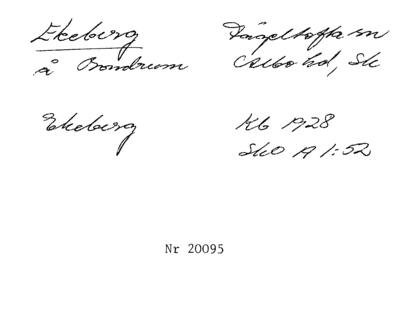 Ekeberg
å Bondrum
Fågeltofta sn
Albo hd, Sk
Ekeberg
Kb 1928
SkO A 1:52
Nr 20095